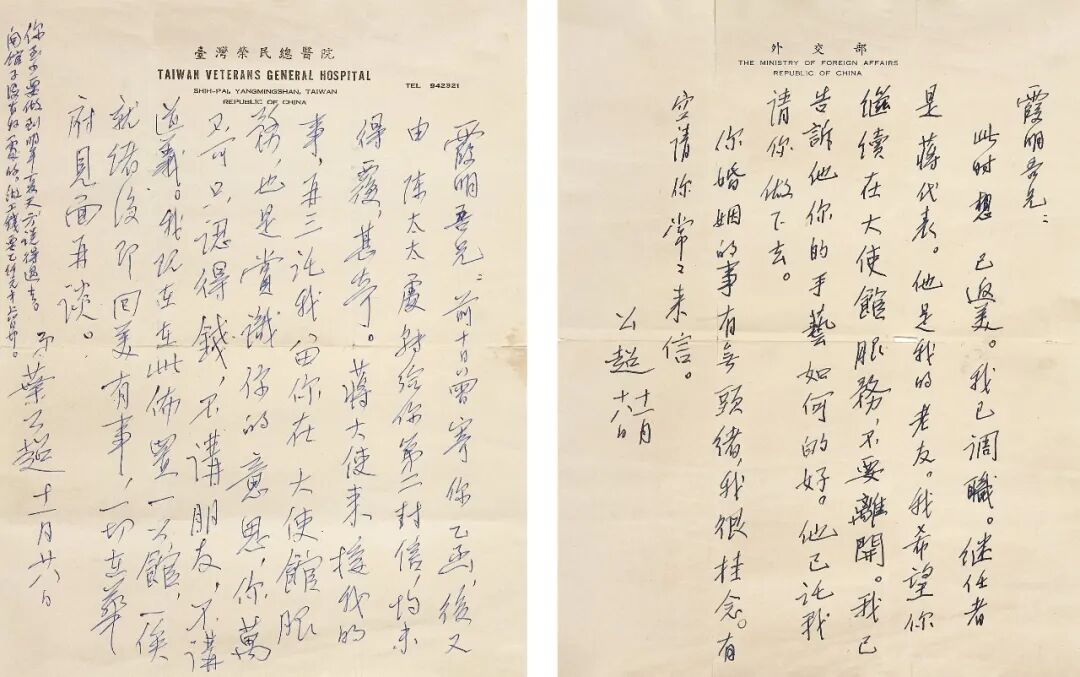 臺灣榮民總醫院
TAIWAN VETERANS GENERAL HOSPITAL
SHIH-PAI, YANGMINGSHAN, TAIWAN
TEL 942321
REPUBLIC OF CHINA
霞明吾兄：前十日曾寄你乙函，後又
由 陳太太處轉給你第二封信，均未
得覆，甚奇。蔣大使來接我的
事，再三託我留你在 大使館服
務，也是賞識你的意思，你萬
不可只認得錢，不講朋友，不講
道義。我現在在此佈置一公館，一俟
就緒後即回美有事，一切在華
府見面再談。
弟葉公超 十一月廿八日
你至少要做到明年夏天方說得過去。
開館子沒有好處的。
外交部
THE MINISTRY OF FOREIGN AFFAIRS
REPUBLIC OF CHINA
霞明吾兄：
此时想 已返美。我已调職。继任者
是蔣代表。他是我的老友。我希望你
继续在大使館服務，不要離開。我已
告訴他你的手藝如何的好。他已託我
請你做下去。
你婚姻的事有無頭緒，我很挂念。有
空請你常々来信。
公超 十一月
十八日